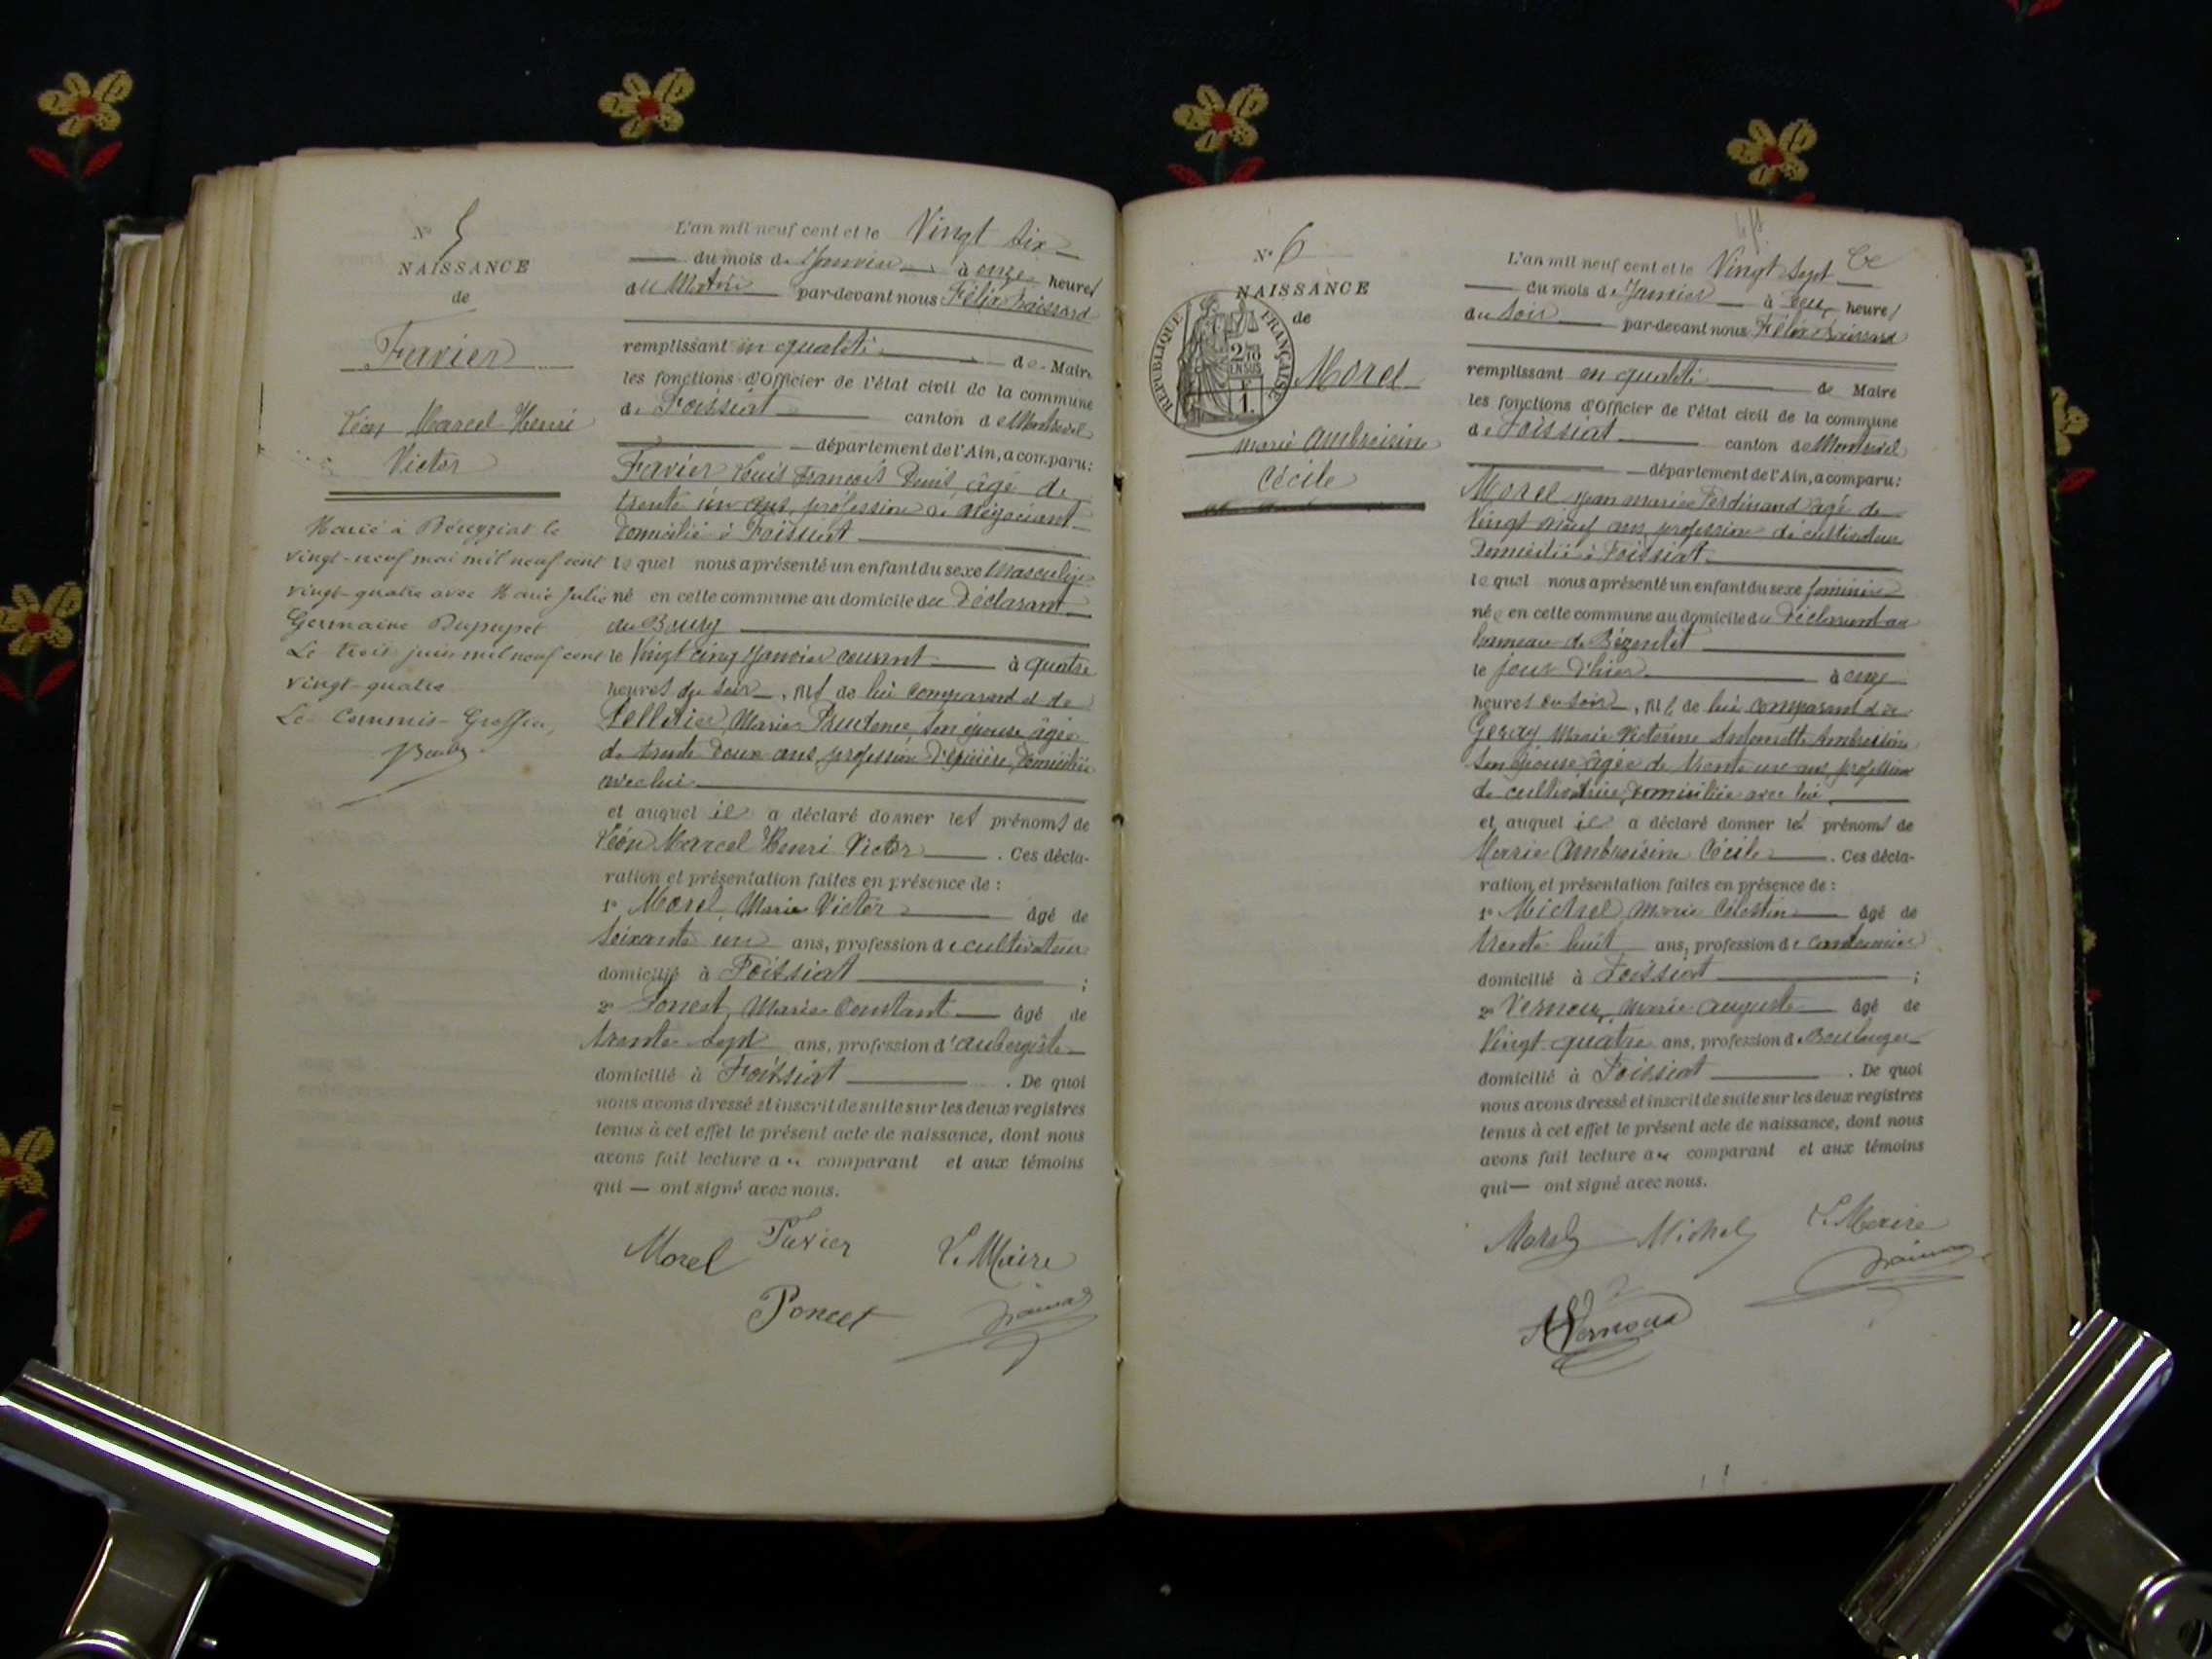 N° 5
NAISSANCE
de
Favier
Léon Marcel Henri
Victor
Marié à Béreyziat le
vingt-neuf mai mil neuf cent
vingt-quatre avec Marie Julie
Germaine Dupupet
Le trois juin mil neuf cent
vingt-quatre
Le Commis-Greffier,
L'an mil neuf cent et le Vingt six
du mois de Janvier à onze heures
du Matin par-devant nous Félix
remplissant en qualité de Maire
les fonctions d'Officier de l'état civil de la commune
de Foissiat canton de Montrevel
département de l'Ain, a comparu:
Favier Louis François Denis, âgé de
trente un ans, profession de Négociant
Domicilié à Foissiat
lequel nous a présenté un enfant du sexe Masculin
né en cette commune au domicile du Déclarant
au Bourg
le Vingt cinq Janvier courant à quatre
heures du soir, fils de lui comparant et de
Pelletier Marie Prudence, son épouse âgée
de trente Deux ans, profession D'épicière, Domiciliée
avec lui
et auquel il a déclaré donner les prénoms de
Léon Marcel Henri Victor. Ces décla-
ration et présentation faites en présence de :
1° Morel, Marie Victor âgé de
Soixante un ans, profession de cultivateur
domicilié à Foissiat ;
2° Poncet, Marie Constant âgé de
trente sept ans, profession d'aubergiste
domicilié à Foissiat. De quoi
nous avons dressé et inscrit de suite sur les deux registres
tenus à cet effet le présent acte de naissance, dont nous
avons fait lecture au comparant et aux témoins
qui — ont signé avec nous.
Morel Favier Le Maire
Poncet
N° 6
NAISSANCE
de
RÉPUBLIQUE FRANÇAISE
2/10
EN SUS
1 F
Morel
Marie Ambroisine
Cécile
L'an mil neuf cent et le Vingt Sept
du mois de Janvier à Deux heures
du Soir par-devant nous Félix
remplissant en qualité de Maire
les fonctions d'Officier de l'état civil de la commune
de Foissiat canton de Montrevel
département de l'Ain, a comparu:
Morel Jean Marie Ferdinand âgé de
Vingt neuf ans, profession de cultivateur
Domicilié à Foissiat
lequel nous a présenté un enfant du sexe féminin
née en cette commune au domicile du Déclarant au
hameau de Bézentet
le jour d'hier à onze
heures du soir, fille de lui comparant et de
Marie Victorine Ambroisine
Son épouse âgée de trente un ans, profession
de cultivatrice, Domiciliée avec lui
et auquel il a déclaré donner les prénoms de
Marie Ambroisine Cécile. Ces décla-
ration et présentation faites en présence de :
1° Michel, Marie Célestin âgé de
trente huit ans, profession de Cordonnier
domicilié à Foissiat ;
2° Vernoux, Marie Auguste âgé de
Vingt quatre ans, profession de Boulanger
domicilié à Foissiat. De quoi
nous avons dressé et inscrit de suite sur les deux registres
tenus à cet effet le présent acte de naissance, dont nous
avons fait lecture au comparant et aux témoins
qui — ont signé avec nous.
Morel Michel Le Maire
A Vernoux